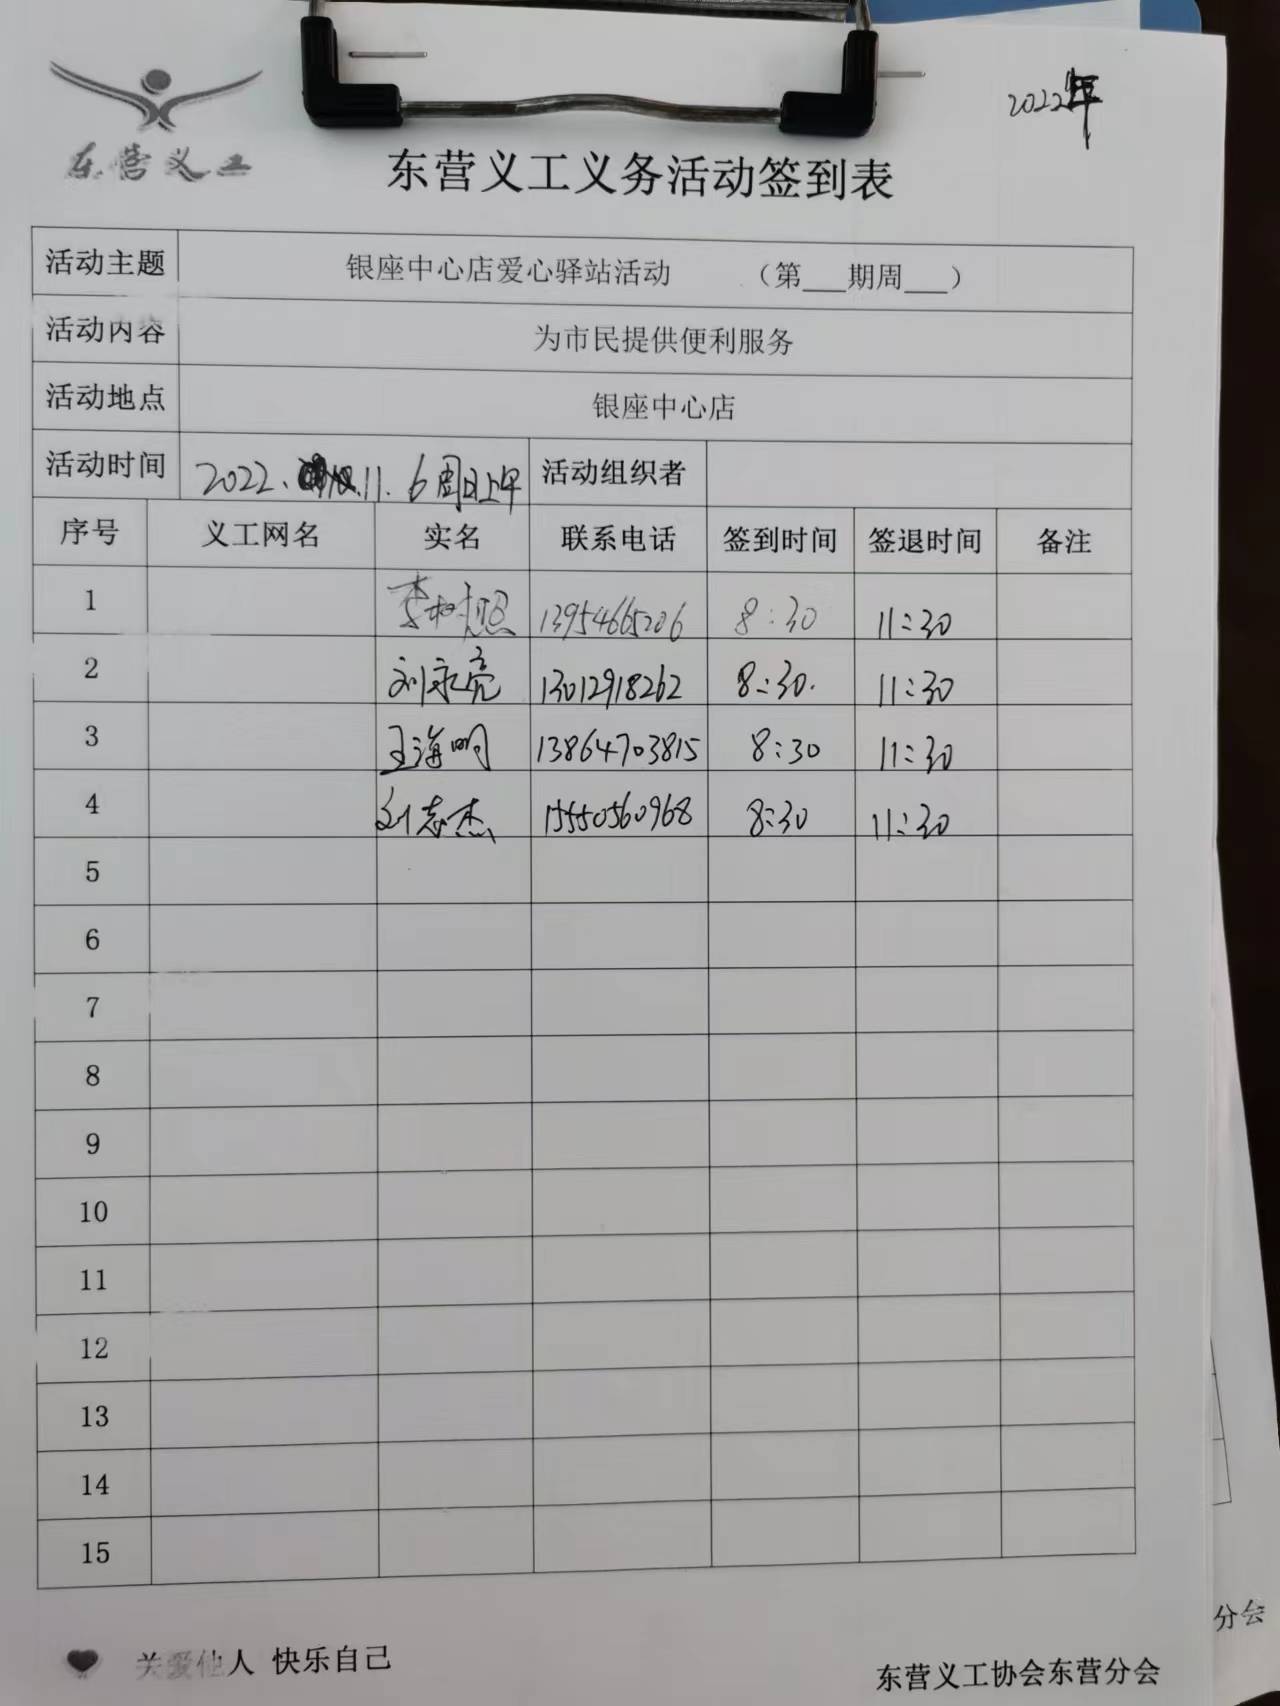 2022年
东营义工
东营义工义务活动签到表
活动主题 银座中心店爱心驿站活动 （第___期周___）
活动内容 为市民提供便利服务
活动地点 银座中心店
活动时间 2022. 11. 6周日上午 活动组织者
序号 义工网名 实名 联系电话 签到时间 签退时间 备注
1 李 照 13954665206 8:30 11:30
2 刘永亮 13012918262 8:30. 11:30
3 王海明 13864703815 8:30 11:30
4 刘志杰 15550560968 8:30 11:30
5
6
7
8
9
10
11
12
13
14
15
关爱他人 快乐自己
东营义工协会东营分会
分会